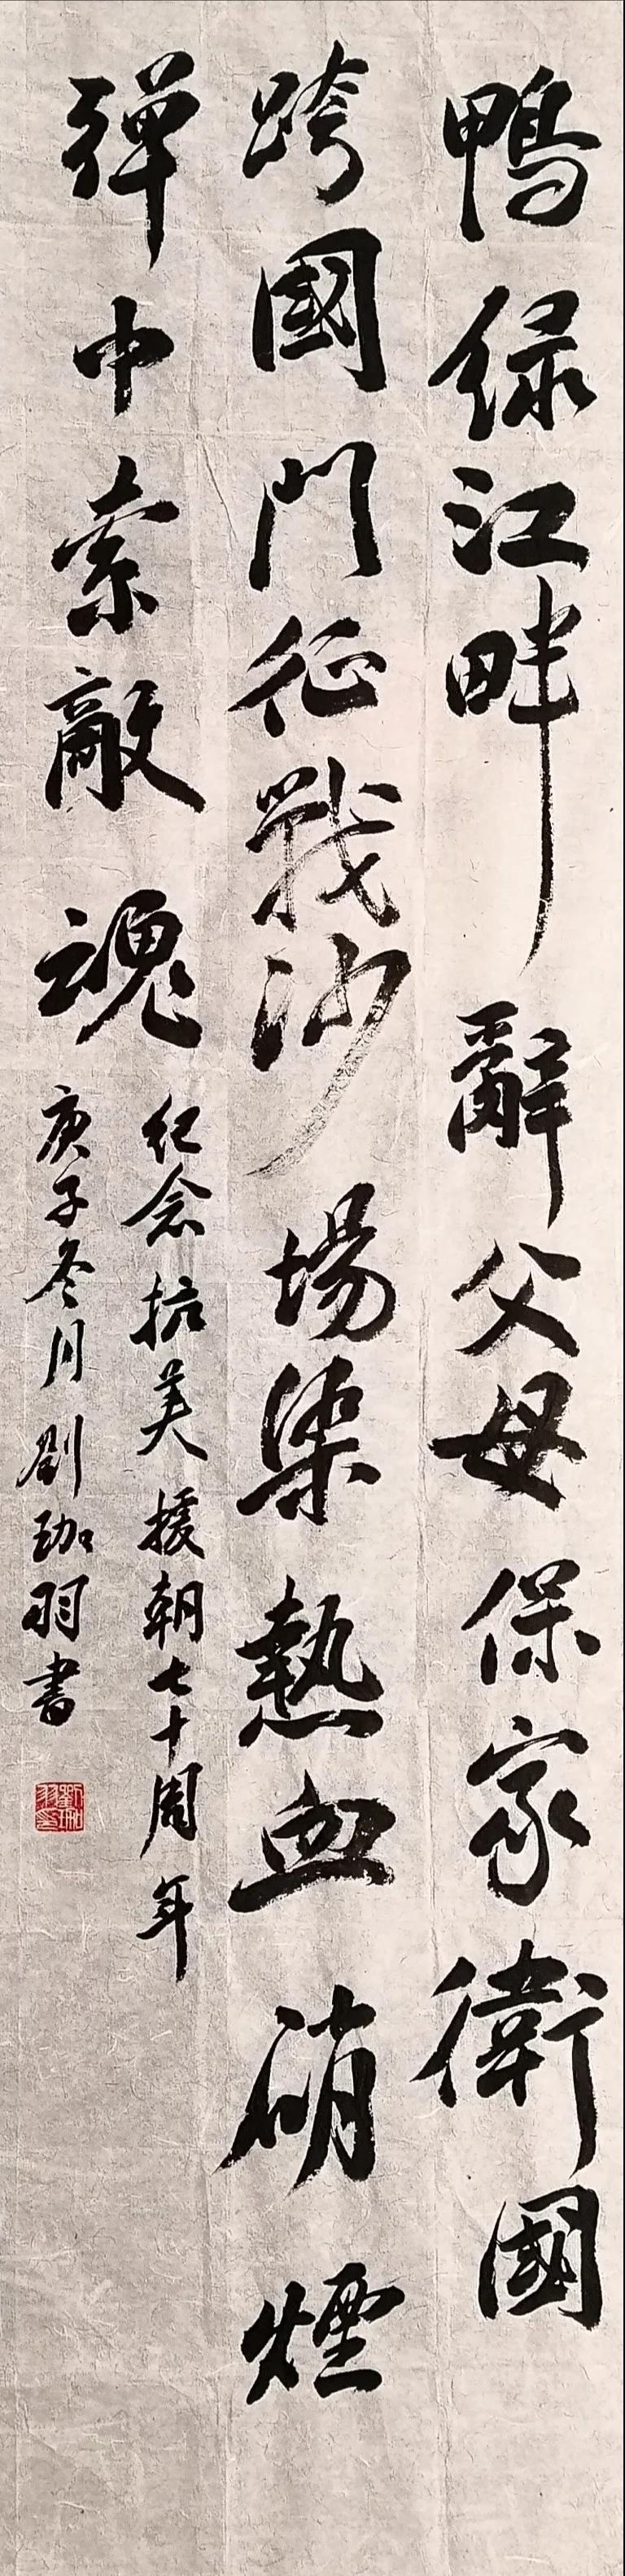 鴨绿江畔辭父母保家衛國
跨國門征戰沙場染熱血硝煙
彈中索敵魂
纪念抗美援朝七十周年
庚子冬月劉珈羽書